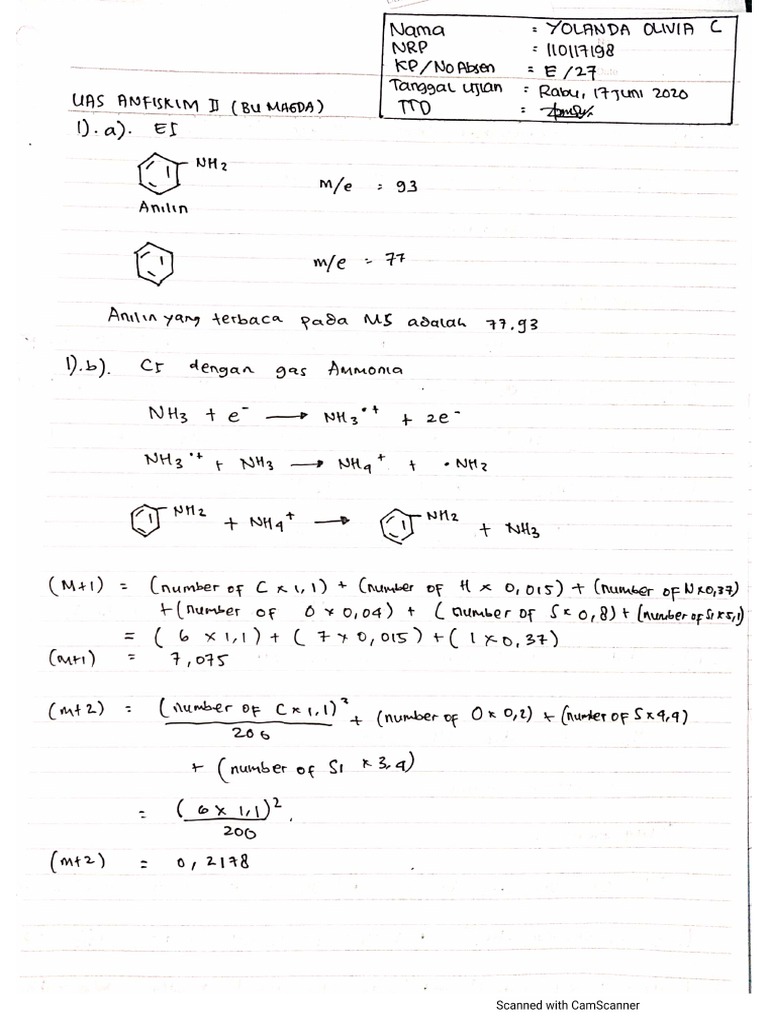 Nama : YOLANDA OLIVIA C
NRP : 110117198
KP/No Absen = E/27
Tanggal Ujian : Rabu, 17 Juni 2020
TTD :
UAS ANFISKIM II (BU MAGDA)
1). a). EI
NH2
m/e : 93
Anilin
m/e = 77
Anilin yang terbaca pada MS adalah 77.93
1).b). CI dengan gas Ammonia
NH3 + e⁻ → NH3•⁺ + 2e⁻
NH3•⁺ + NH3 → NH4⁺ + •NH2
NH2 + NH4⁺ → NH2 + NH3
(M+1) = (number of C x 1,1) + (number of H x 0,015) + (number of N x 0,37)
+ (number of O x 0,04) + (number of S x 0,8) + (number of Si x 5,1)
= (6 x 1,1) + (7 x 0,015) + (1 x 0,37)
(M+1) = 7,075
(M+2) = (number of C x 1,1)² / 200 + (number of O x 0,2) + (number of S x 4,4)
+ (number of Si x 3,4)
= (6 x 1,1)² / 200
(M+2) = 0,2178
Scanned with CamScanner